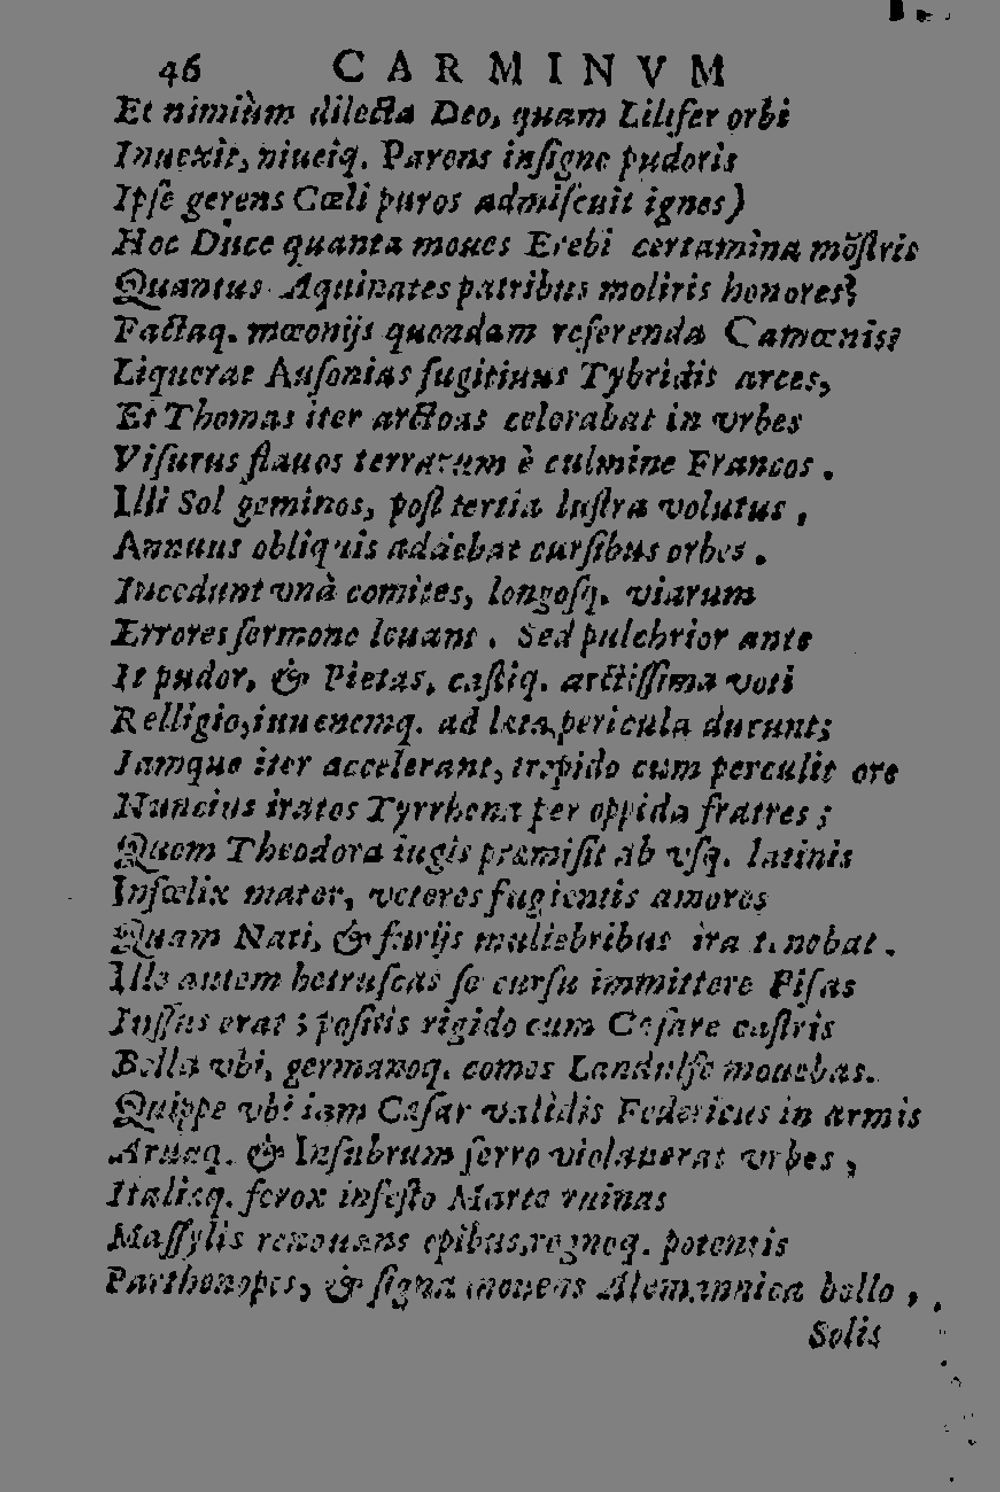 46 CARMINVM
Et nimiùm dilecta Deo, quam Lilifer orbi
Inuexit, niueiq. Parens insigne pudoris
Ipse gerens Cœli puros admiscuit ignes)
Hoc Duce quanta moues Erebi certamina mõstris
Quantus Aquinates patribus moliris honores?
Factaq. mœonijs quondam referenda Camœnis?
Liquerat Ausonias fugitiuus Tybridis arces,
Et Thomas iter arctoas celerabat in vrbes
Visurus flauos terrarum è culmine Francos.
Illi Sol geminos, post tertia lustra volutus,
Annuus obliquis addebat cursibus orbes.
Incedunt vnà comites, longosq. viarum
Errores sermone leuant. Sed pulchrior ante
It pudor, & Pietas, castiq. arctissima voti
Relligio, inuenemq. ad læta pericula ducunt;
Iamque iter accelerant, trepido cum perculit ore
Nuncius iratos Tyrrhena per oppida fratres;
Quem Theodora iugis præmisit ab vsq. latinis
Infœlix mater, veteres fugientis amores
Quam Nati, & furijs muliebribus ira tenebat.
Ille autem hetruscas se cursu immittere Pisas
Iussus erat; positis rigido cum Cæsare castris
Bella vbi, germanoq. comes Landulfe mouebas.
Quippe vbi iam Cæsar validis Federicus in armis
Aruaq. & Insubrum ferro violauerat vrbes,
Italisq. ferox infesto Marte ruinas
Massylis renouans opibus, regnoq. potentis
Parthenopes, & signa mouens Alemannica bello,
Solis